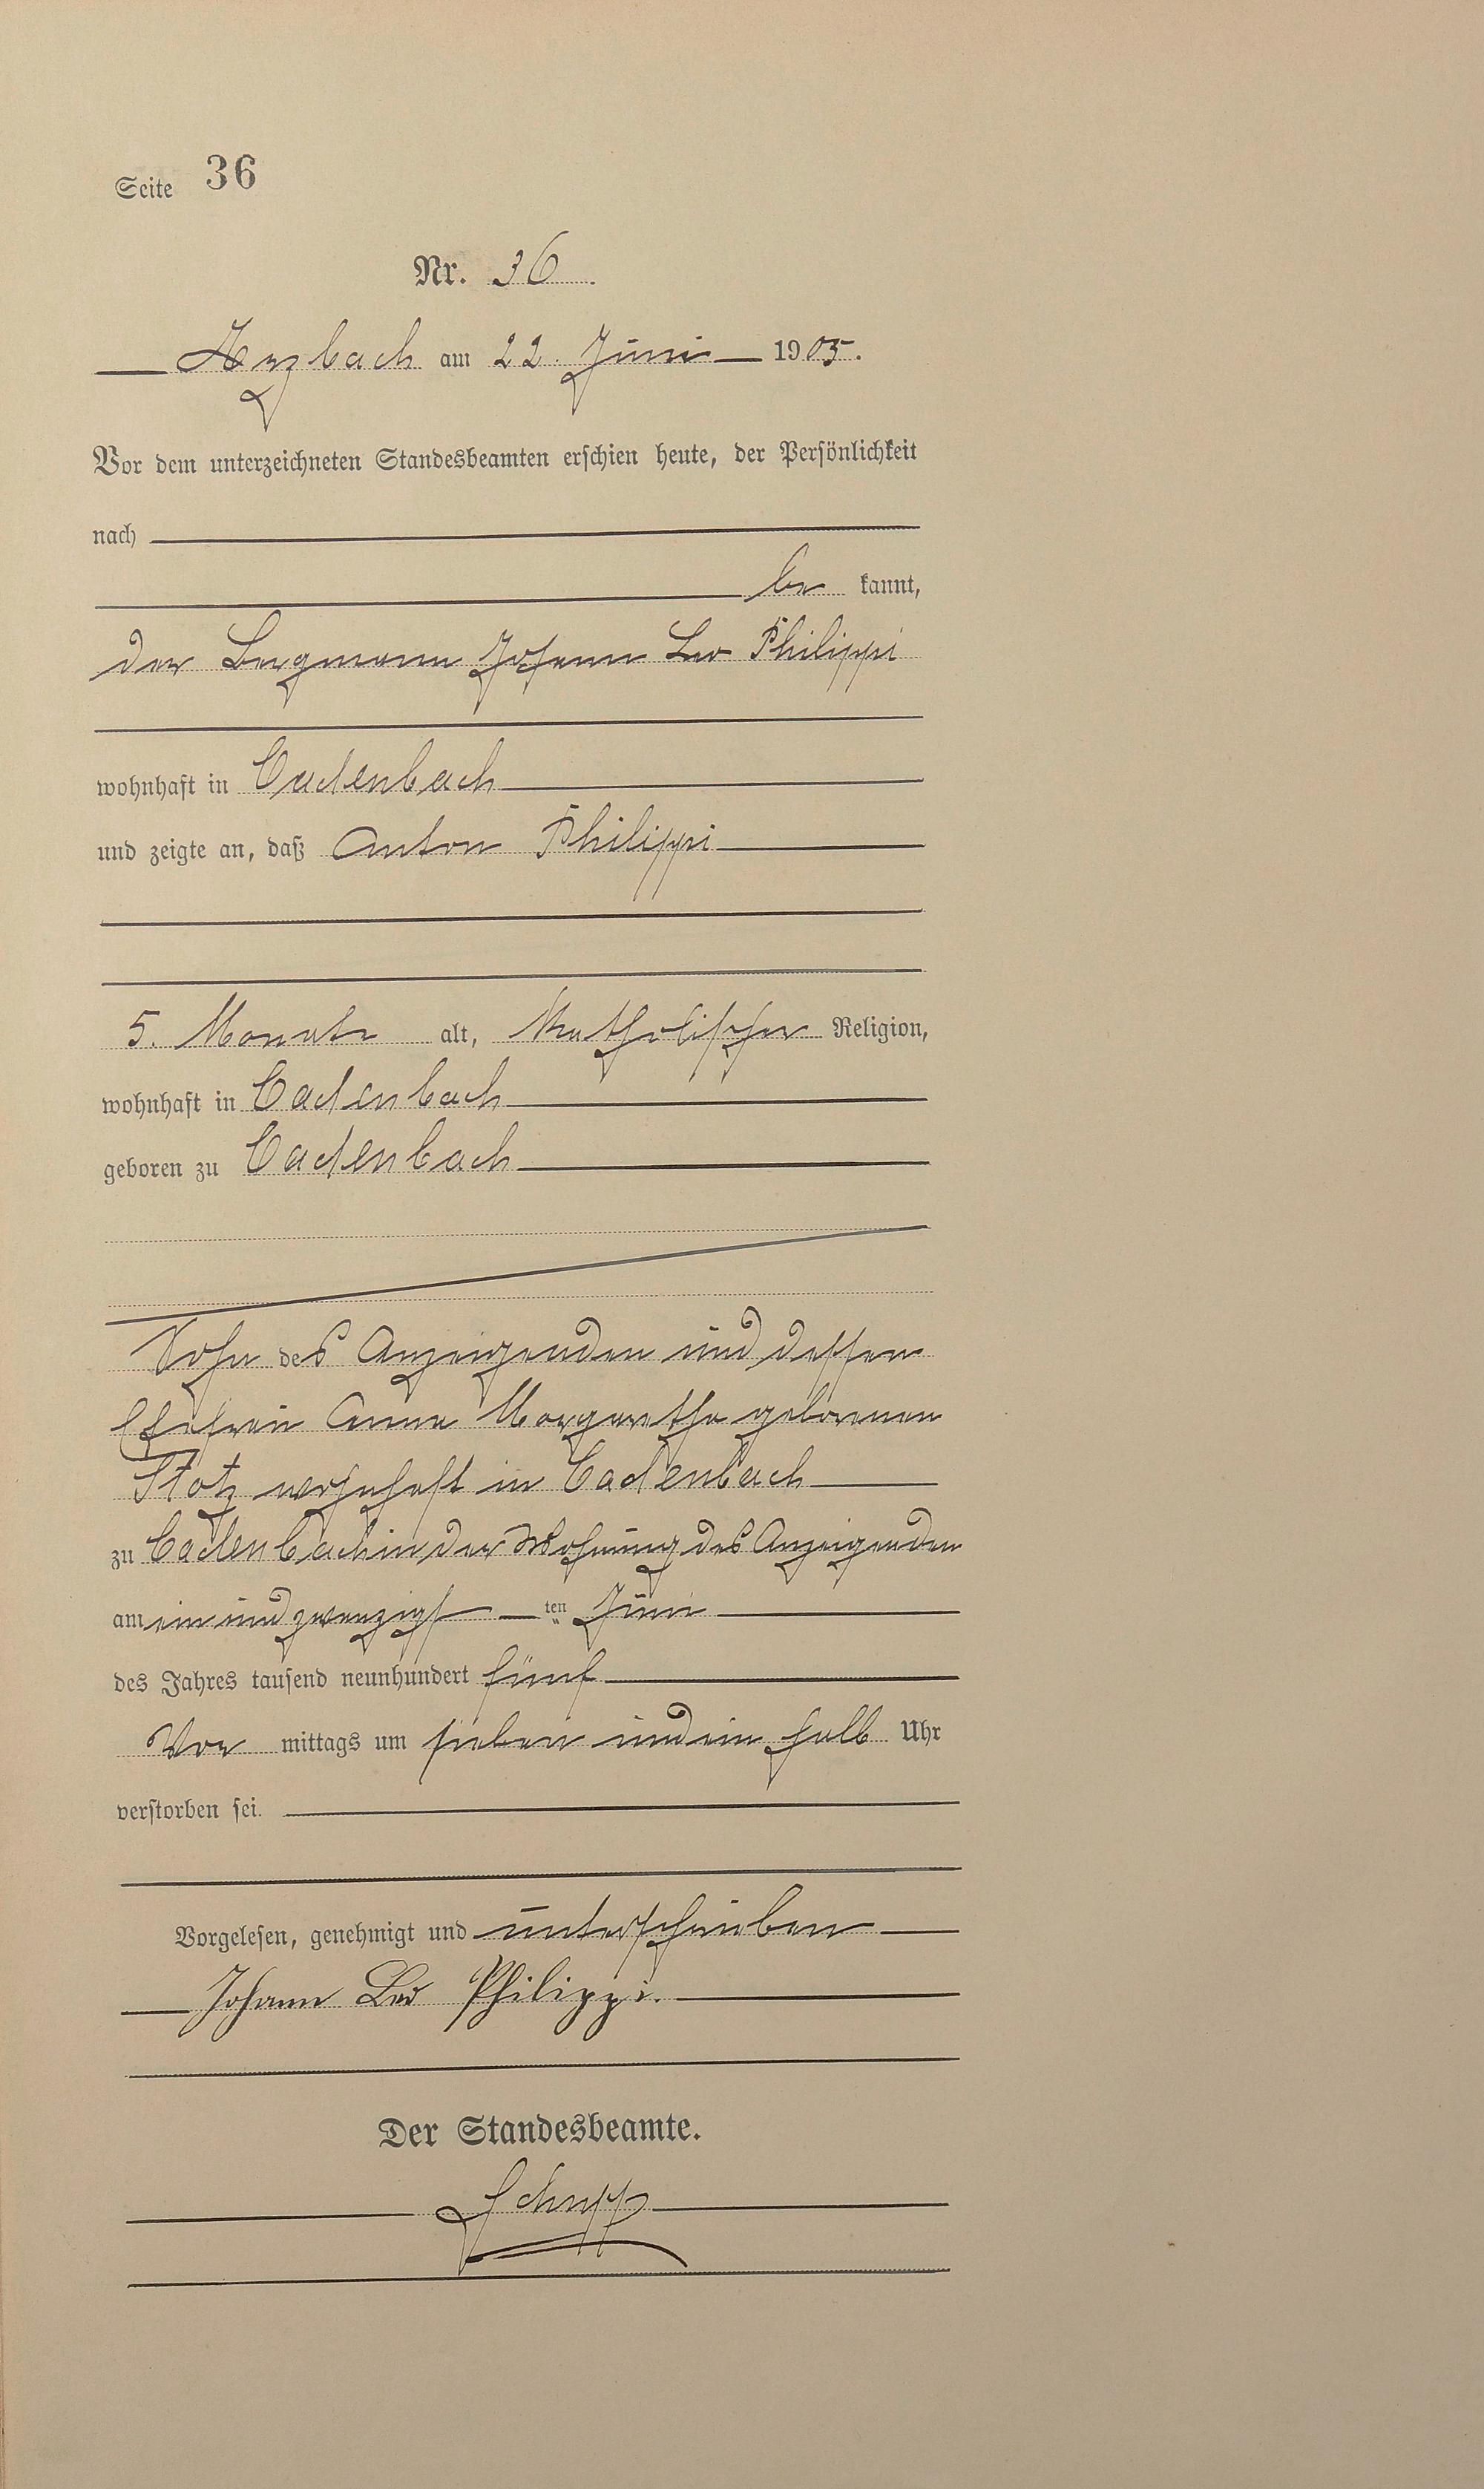 Seite 36
Nr. 36.
Arzbach am 22. Juni 1905.
Vor dem unterzeichneten Standesbeamten erschien heute, der Persönlichkeit
nach
be kannt,
der Bergmann Johann Leo Philippi
wohnhaft in Cadenbach
und zeigte an, daß Anton Philippi
5. Monate alt, Katholischer Religion,
wohnhaft in Cadenbach
geboren zu Cadenbach
Sohn des Anzeigenden und dessen
Ehefrau Anna Margaretha geborenen
Stotz wohnhaft in Cadenbach
zu Cadenbach in der Wohnung des Anzeigenden
am ein und zwanzigsten Juni
des Jahres tausend neunhundert fünf
Vor mittags um sieben und ein halb Uhr
verstorben sei.
Vorgelesen, genehmigt und unterschrieben
Johann Leo Philippi.
Der Standesbeamte.
Schupp